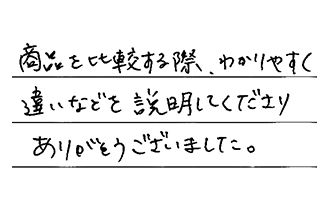 商品を比較する際、わかりやすく
違いなどを説明してくださり
ありがとうございました。